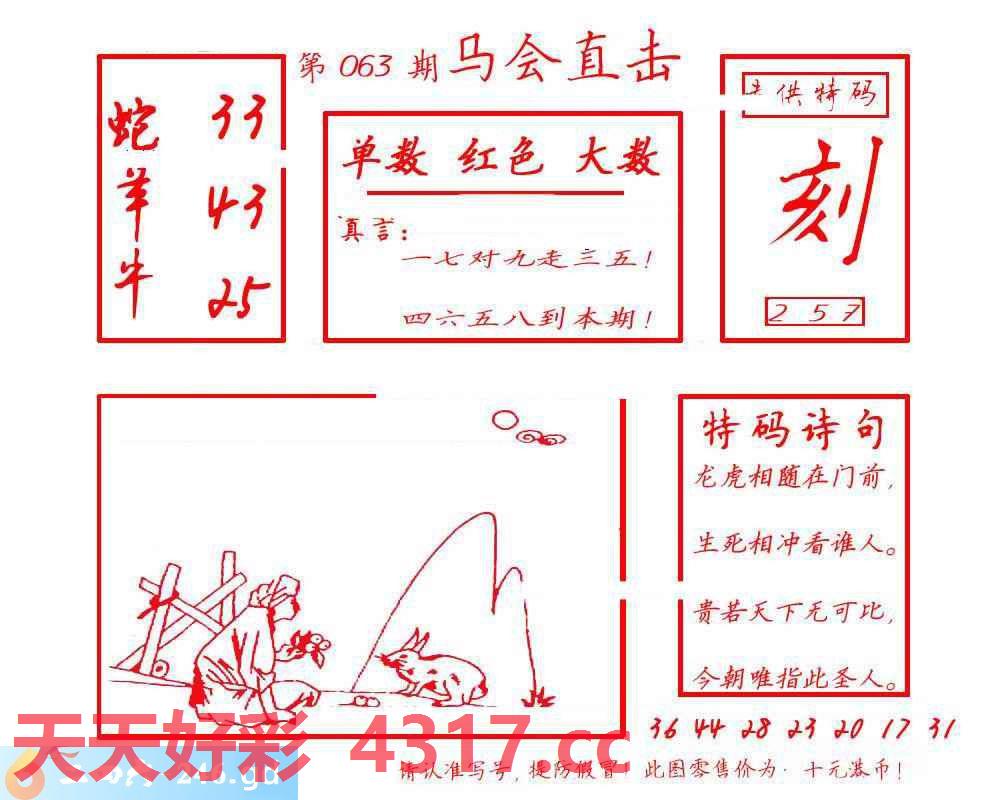 第 063 期 马会直击
蛇 33
羊 43
牛 25
单数 红色 大数
真言：
一七对九走三五！
四六五八到本期！
供特码
刻
2 5 7
特码诗句
龙虎相随在门前，
生死相冲看谁人。
贵若天下无可比，
今朝唯指此圣人。
36 44 28 23 20 17 31
天天好彩 4317.cc
246.gd
请认准写号，提防假冒！此图零售价为：十元港币！